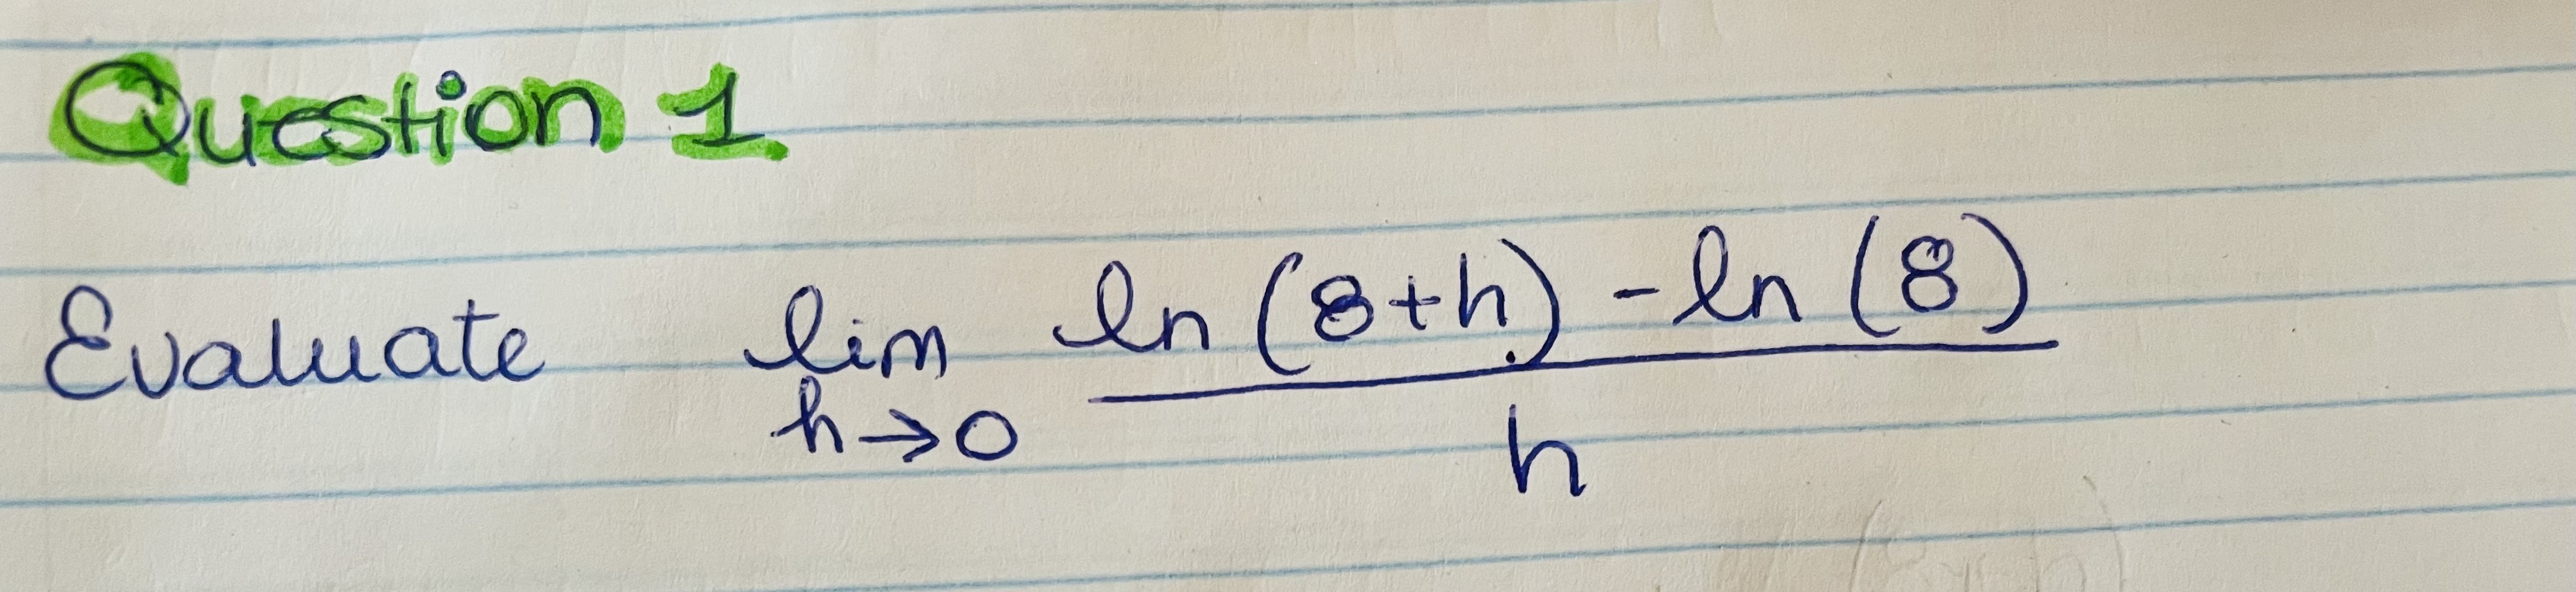 Question 1
Evaluate lim h→0 ln (8+h) - ln (8) / h